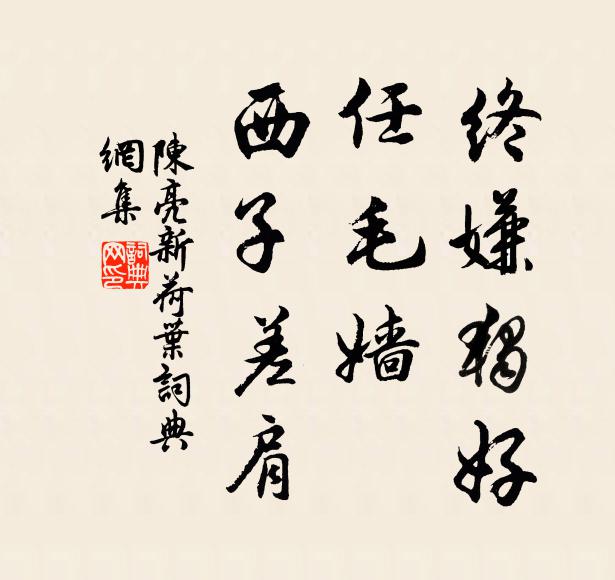 終嫌獨好
任毛嫱
西子差肩
陳亮新荷葉詞典
網集
詞典
网印